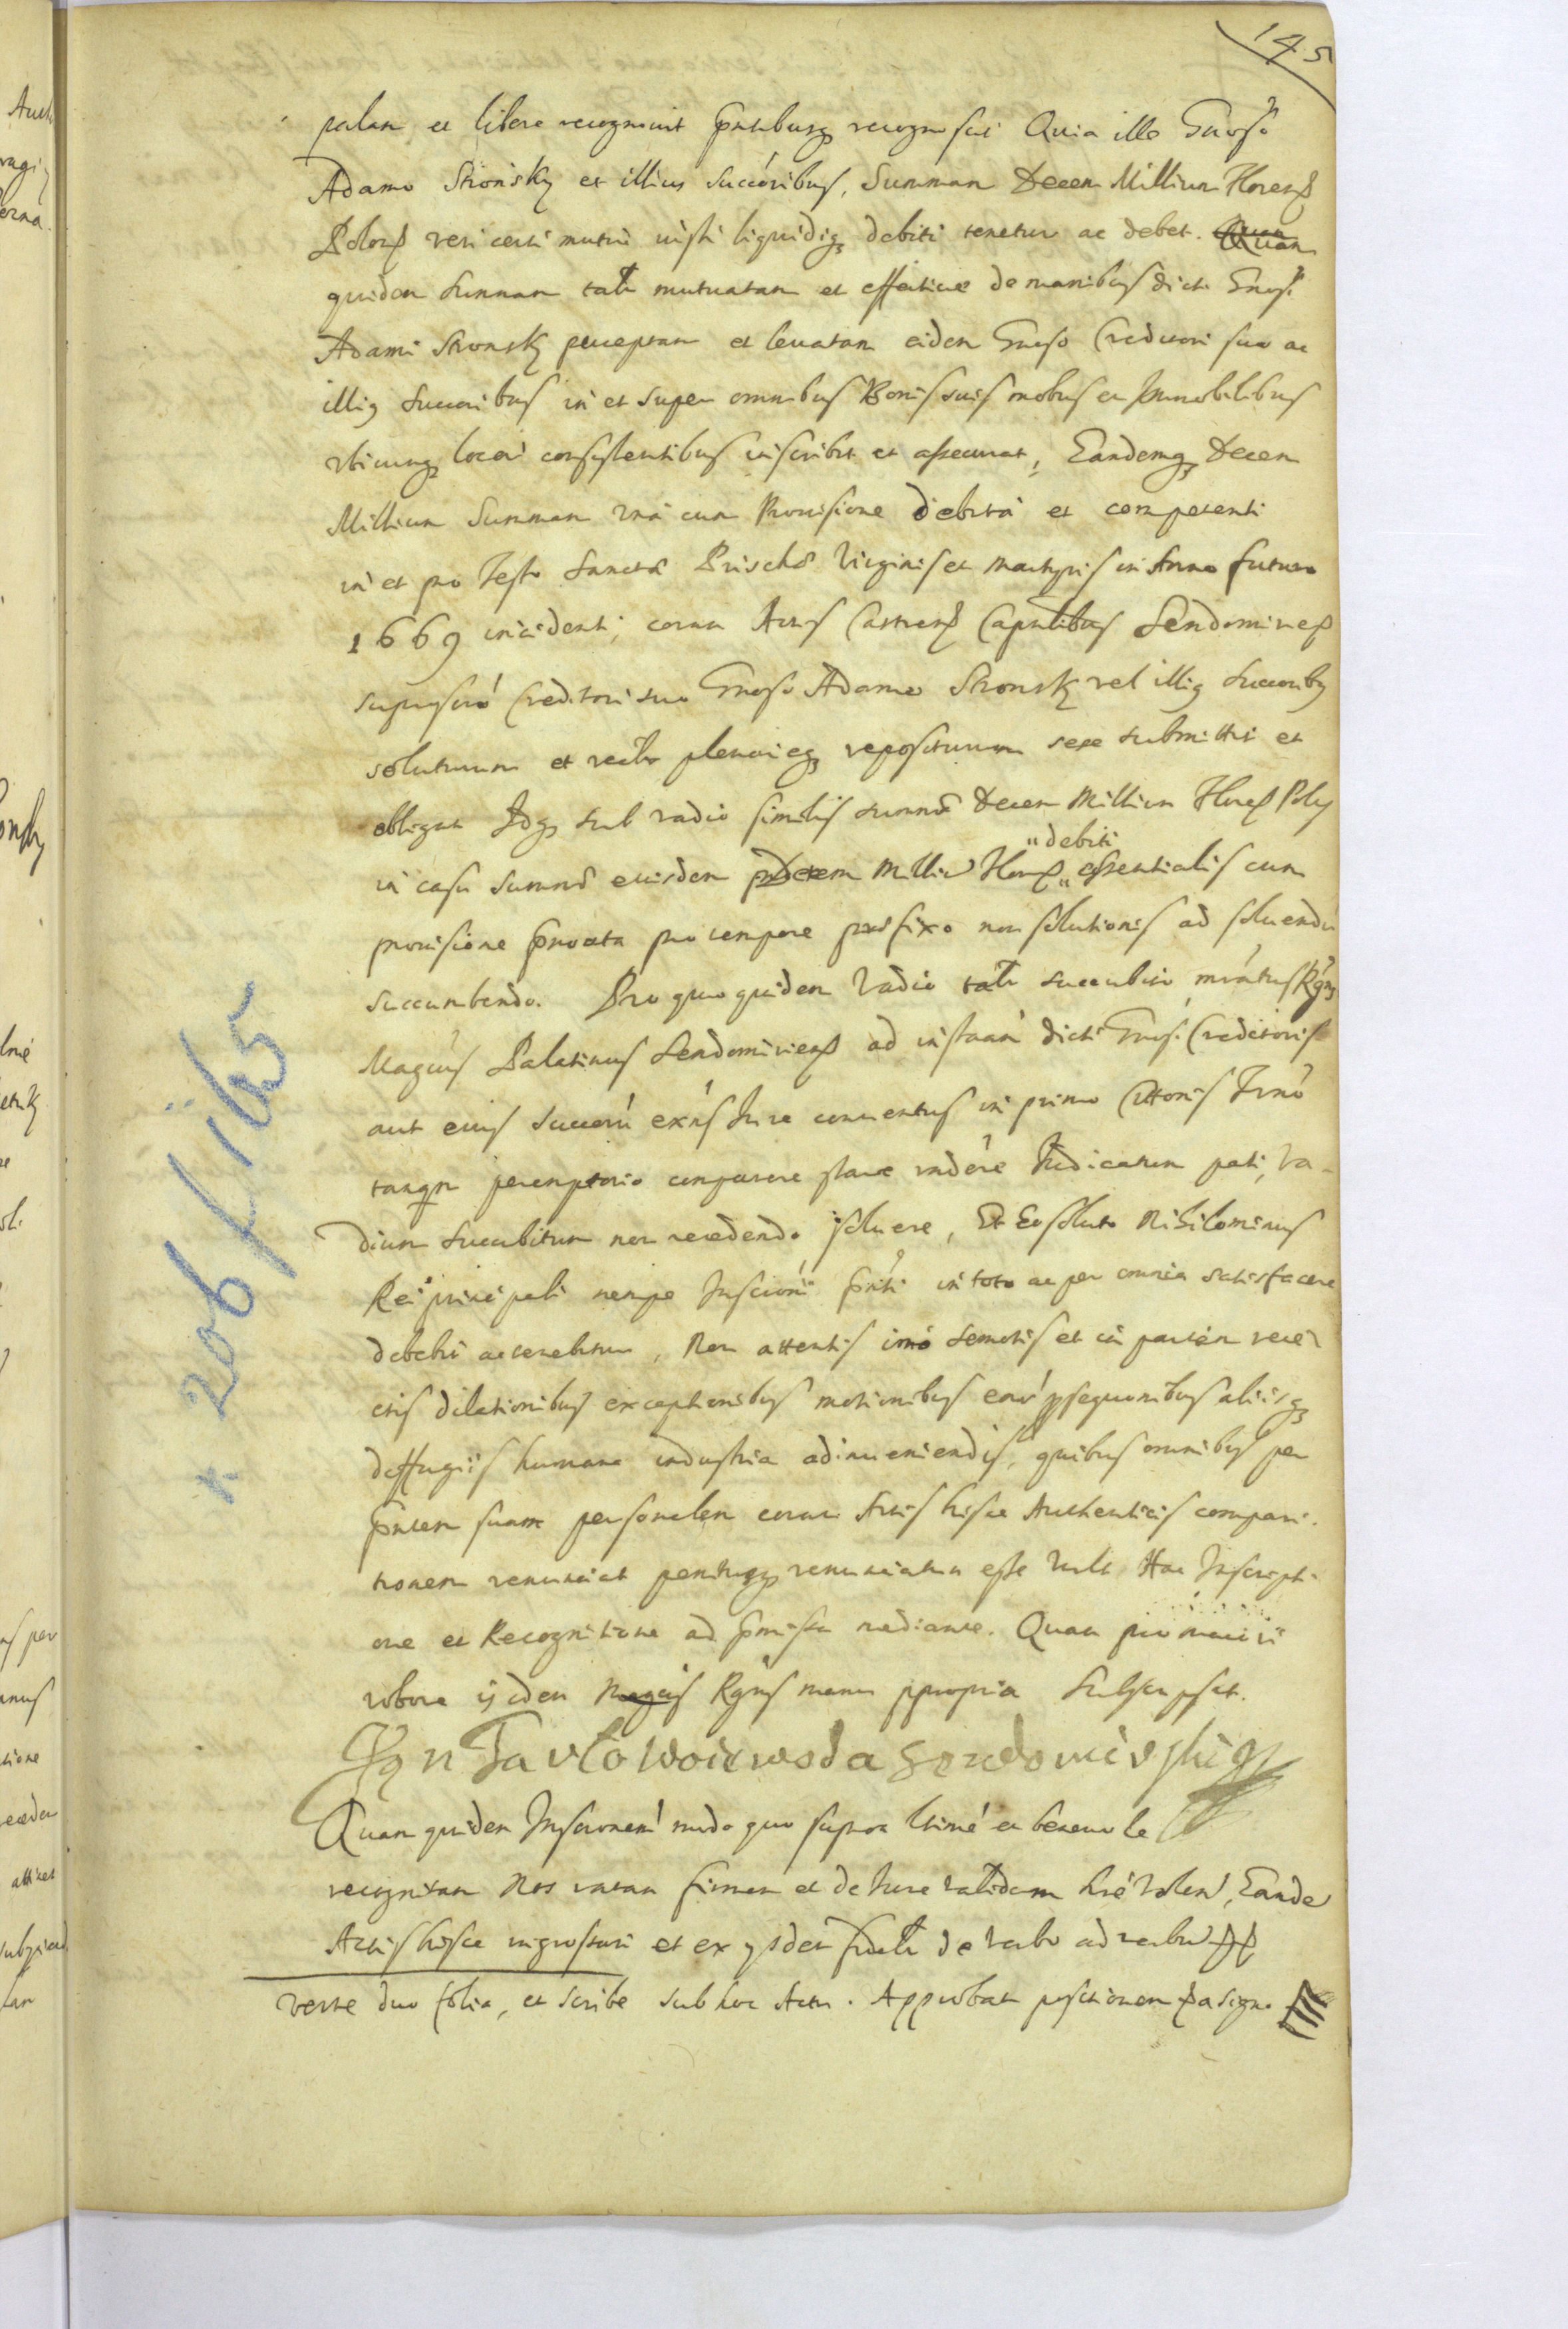 145
palam et libere recognovit pntibusq recognoscit Quia ille Gnoso
Adamo Stronsky et illius succoribus, Summam Decem Millium Floren
Polon veri certi mutui iusti liquidiq debiti tenetur ac debet. Quam
quidem summam talr mutuatam et effective de manibus dicti Gnosi
Adami Stronsky perceptam et levatam eidem Gnoso Creditori suo ac
illiq succoribus in et super omnibus Bonis suis mobus et Immobilibus
ubicunq locor consystentibus inscribit et assecurat, Eandemq Decem
Millium Summam una cum Provisione debita et competenti
in et pro Festo Sanctæ Prischæ Virginis et Martyris in Anno futuro
1669 incidenti, coram Actis Castren Capnlibus Sendomiren
suprascro Creditori suo Gnoso Adamo Stronsky vel illiq succoribq
soluturum et realr plenarieq repositurum sese submittit et
obligat Idq sub vadio similis summæ Decem Millium Floren Poln
"debiti
in casu summæ eiusdem Decem Milliu Floren "essentialis cum
provisione pnoata pro tempore præfixo non solutionis ad solvendu
succumbendo. Pro quo quidem Vadio talr succubito mratus Rgns
Magcus Palatinus Sendomirien ad instaam dicti Gnosi Creditoris
aut eius succoru exns Jure conventus in primo Cittonis Trno
tanqm peremptorio comparere stare rndere Judicatum pati, Va-
dium succubitum non recedendo solvere, Et Eo soluto Nihilominus
Rei principali nempe Inscrioni pnti in toto ac per omnia satisfacere
debebit ac tenebitur, Non attentis imo semotis et in partem reie-
ctis dilationibus exceptionibus motionibus eros psequonibus aliisq
deffugiis humana industria adinveniendis, quibus omnibus per
pntem suam personalem coram Actis hisce Authenticis compari-
tionem renunciat penitusq renunciatum esse vult Hac Inscripti-
one et Recognitione ad pmissa mediante. Quam pro maiori
robore ijsdem Magcus Rgns manu ppropria subscripsit.
Jan Tarło woiewoda sendomirski
Quam quidem Inscrionem modo quo supra ltime et benevole
recognitam Nos ratam firmam et de Jure validam hre volen, Eande
Actis hisce ingrossari et ex ysdem fidelr de verbo ad verbu
verte duo folia, et scribe sub hoc Actu. Approbat posctionem a signo
* 206 / 165